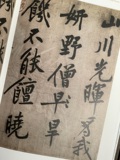 山川光暉為我
妍野僧早早
饑不能饘曉